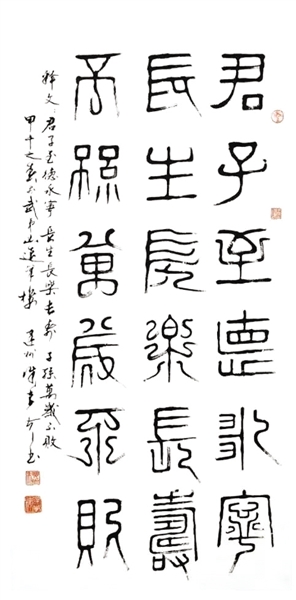 君子至悳永寧
長生長樂長壽
子孫萬歲不敗
释文 君子至德永寧 長生長樂長壽 子孫萬歲不敗